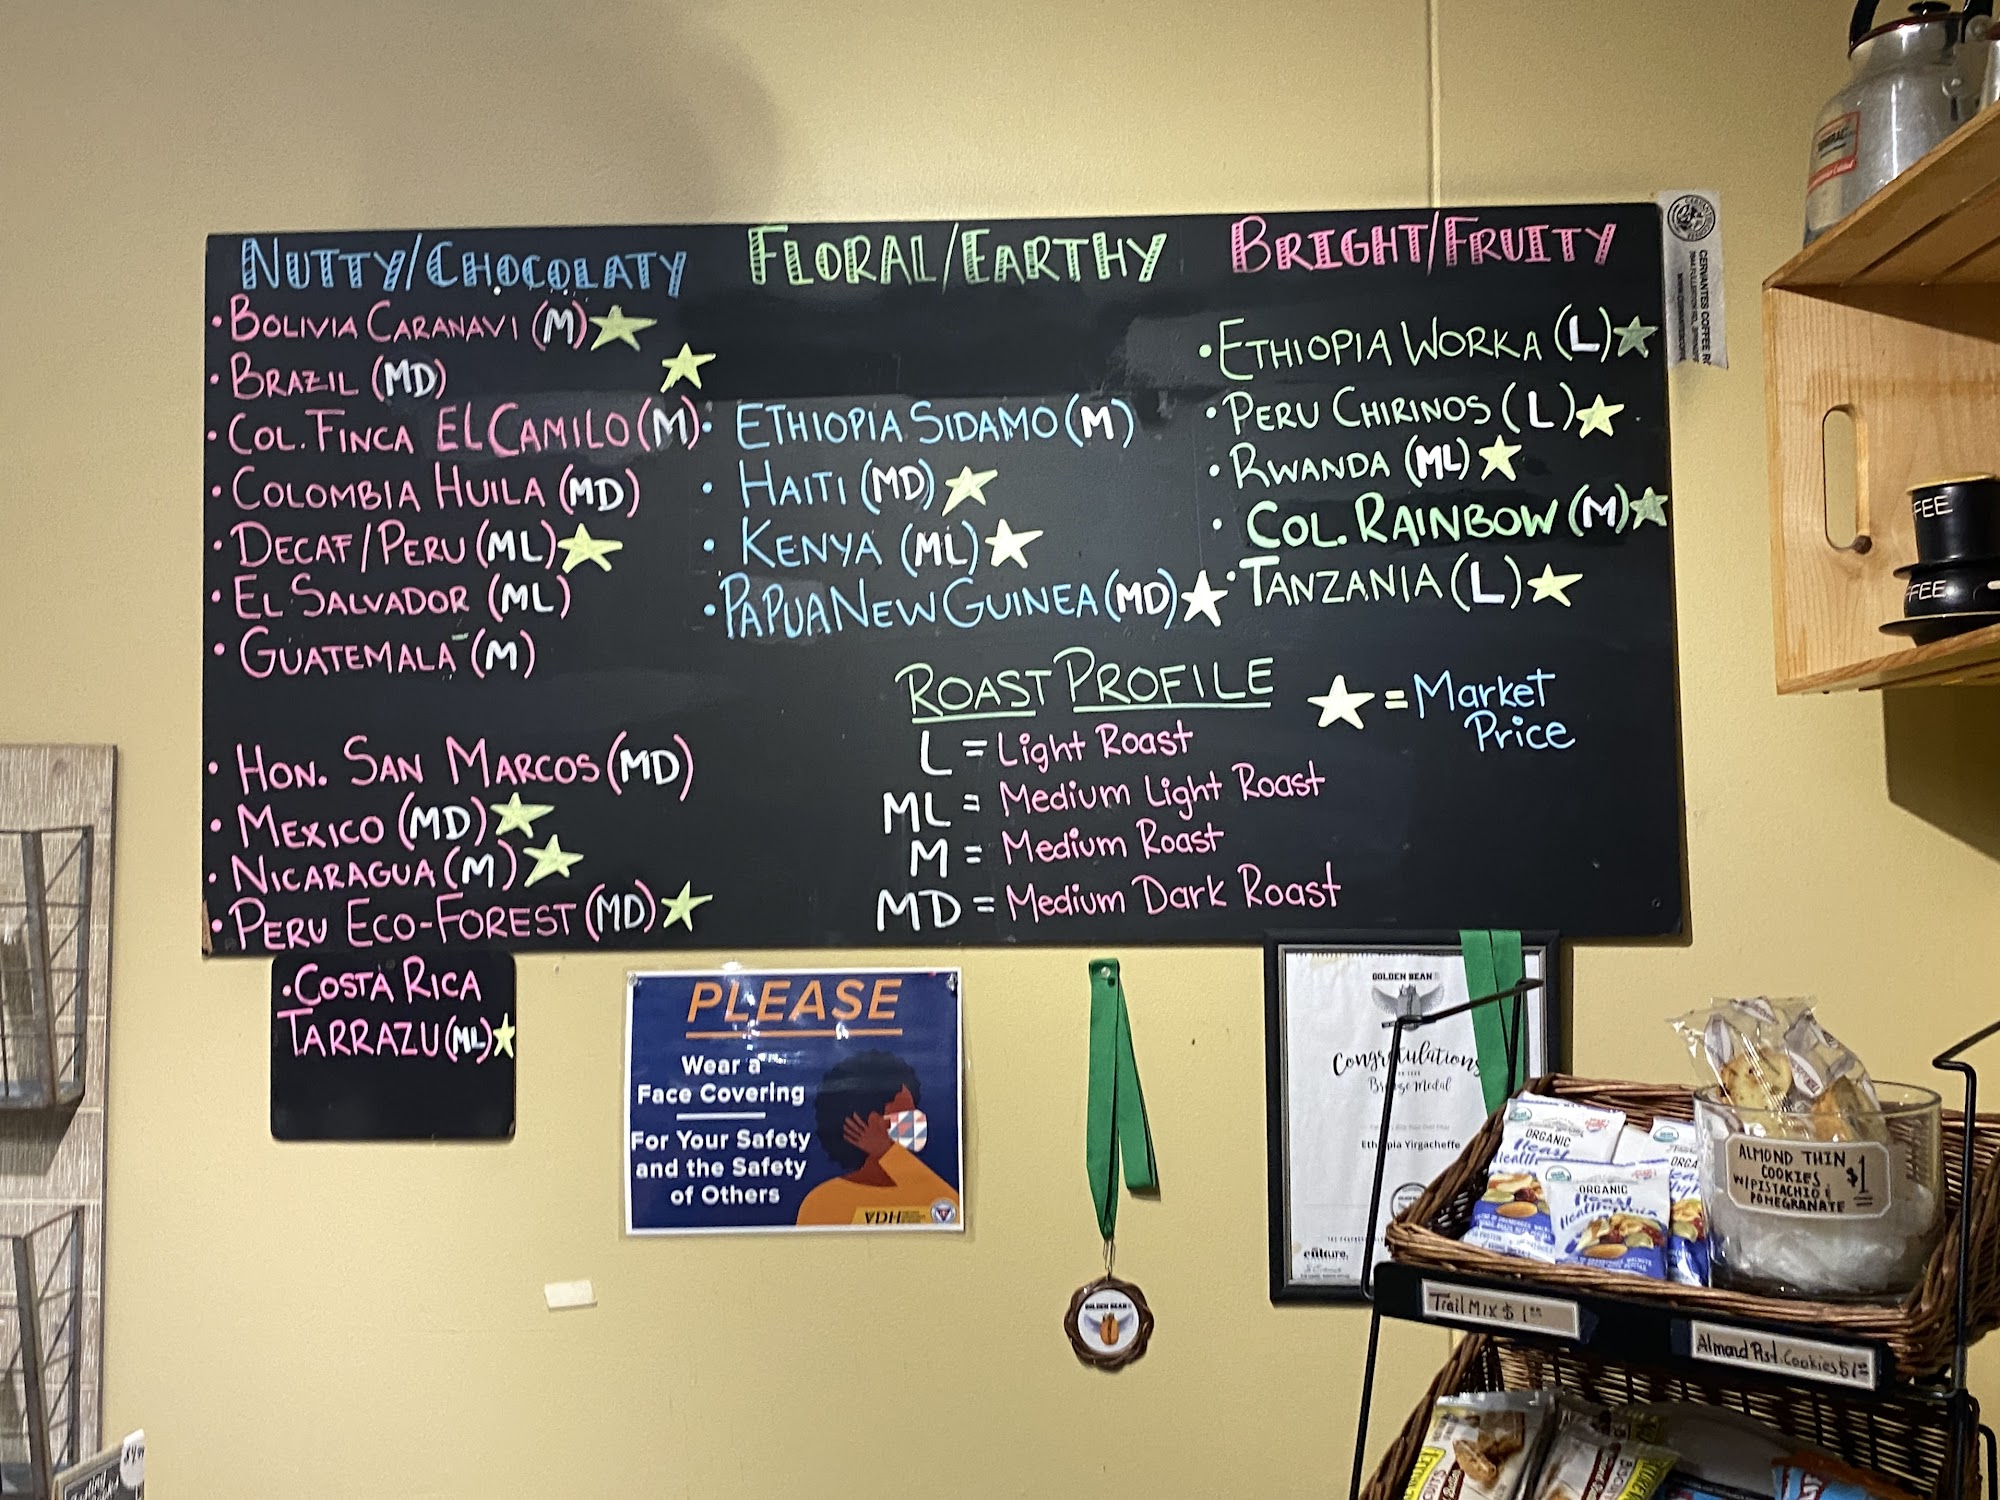 NUTTY/CHOCOLATY
• BOLIVIA CARANAVI (M) ★
• BRAZIL (MD)
★
• COL. FINCA EL CAMILO (M)
• COLOMBIA HUILA (MD)
• DECAF/PERU (ML) ★
• EL SALVADOR (ML)
• GUATEMALA (M)
• HON. SAN MARCOS (MD)
• MEXICO (MD) ★
• NICARAGUA (M) ★
• PERU ECO-FOREST (MD) ★
• COSTA RICA
TARRAZU (ML) ★
FLORAL/EARTHY
• ETHIOPIA SIDAMO (M)
• HAITI (MD) ★
• KENYA (ML) ★
• PAPUA NEW GUINEA (MD) ★
BRIGHT/FRUITY
• ETHIOPIA WORKA (L) ★
• PERU CHIRINOS (L) ★
• RWANDA (ML) ★
• COL. RAINBOW (M) ★
• TANZANIA (L) ★
ROAST PROFILE
L = Light Roast
ML = Medium Light Roast
M = Medium Roast
MD = Medium Dark Roast
★ = Market
Price
CERVANTES COFFEE
FEE
FEE
PLEASE
Wear a
Face Covering
For Your Safety
and the Safety
of Others
VDH
GOLDEN BEAN
GOLDEN BEAN
Congratulations
Bronze Medal
Ethiopia Yirgacheffe
culture
ORGANIC
Heart
Health
ORGANIC
Heart
Health
ALMOND THIN
COOKIES
W/PISTACHIO &
POMEGRANATE
$1
Trail Mix $1.00
Almond Pist. Cookies $1.00